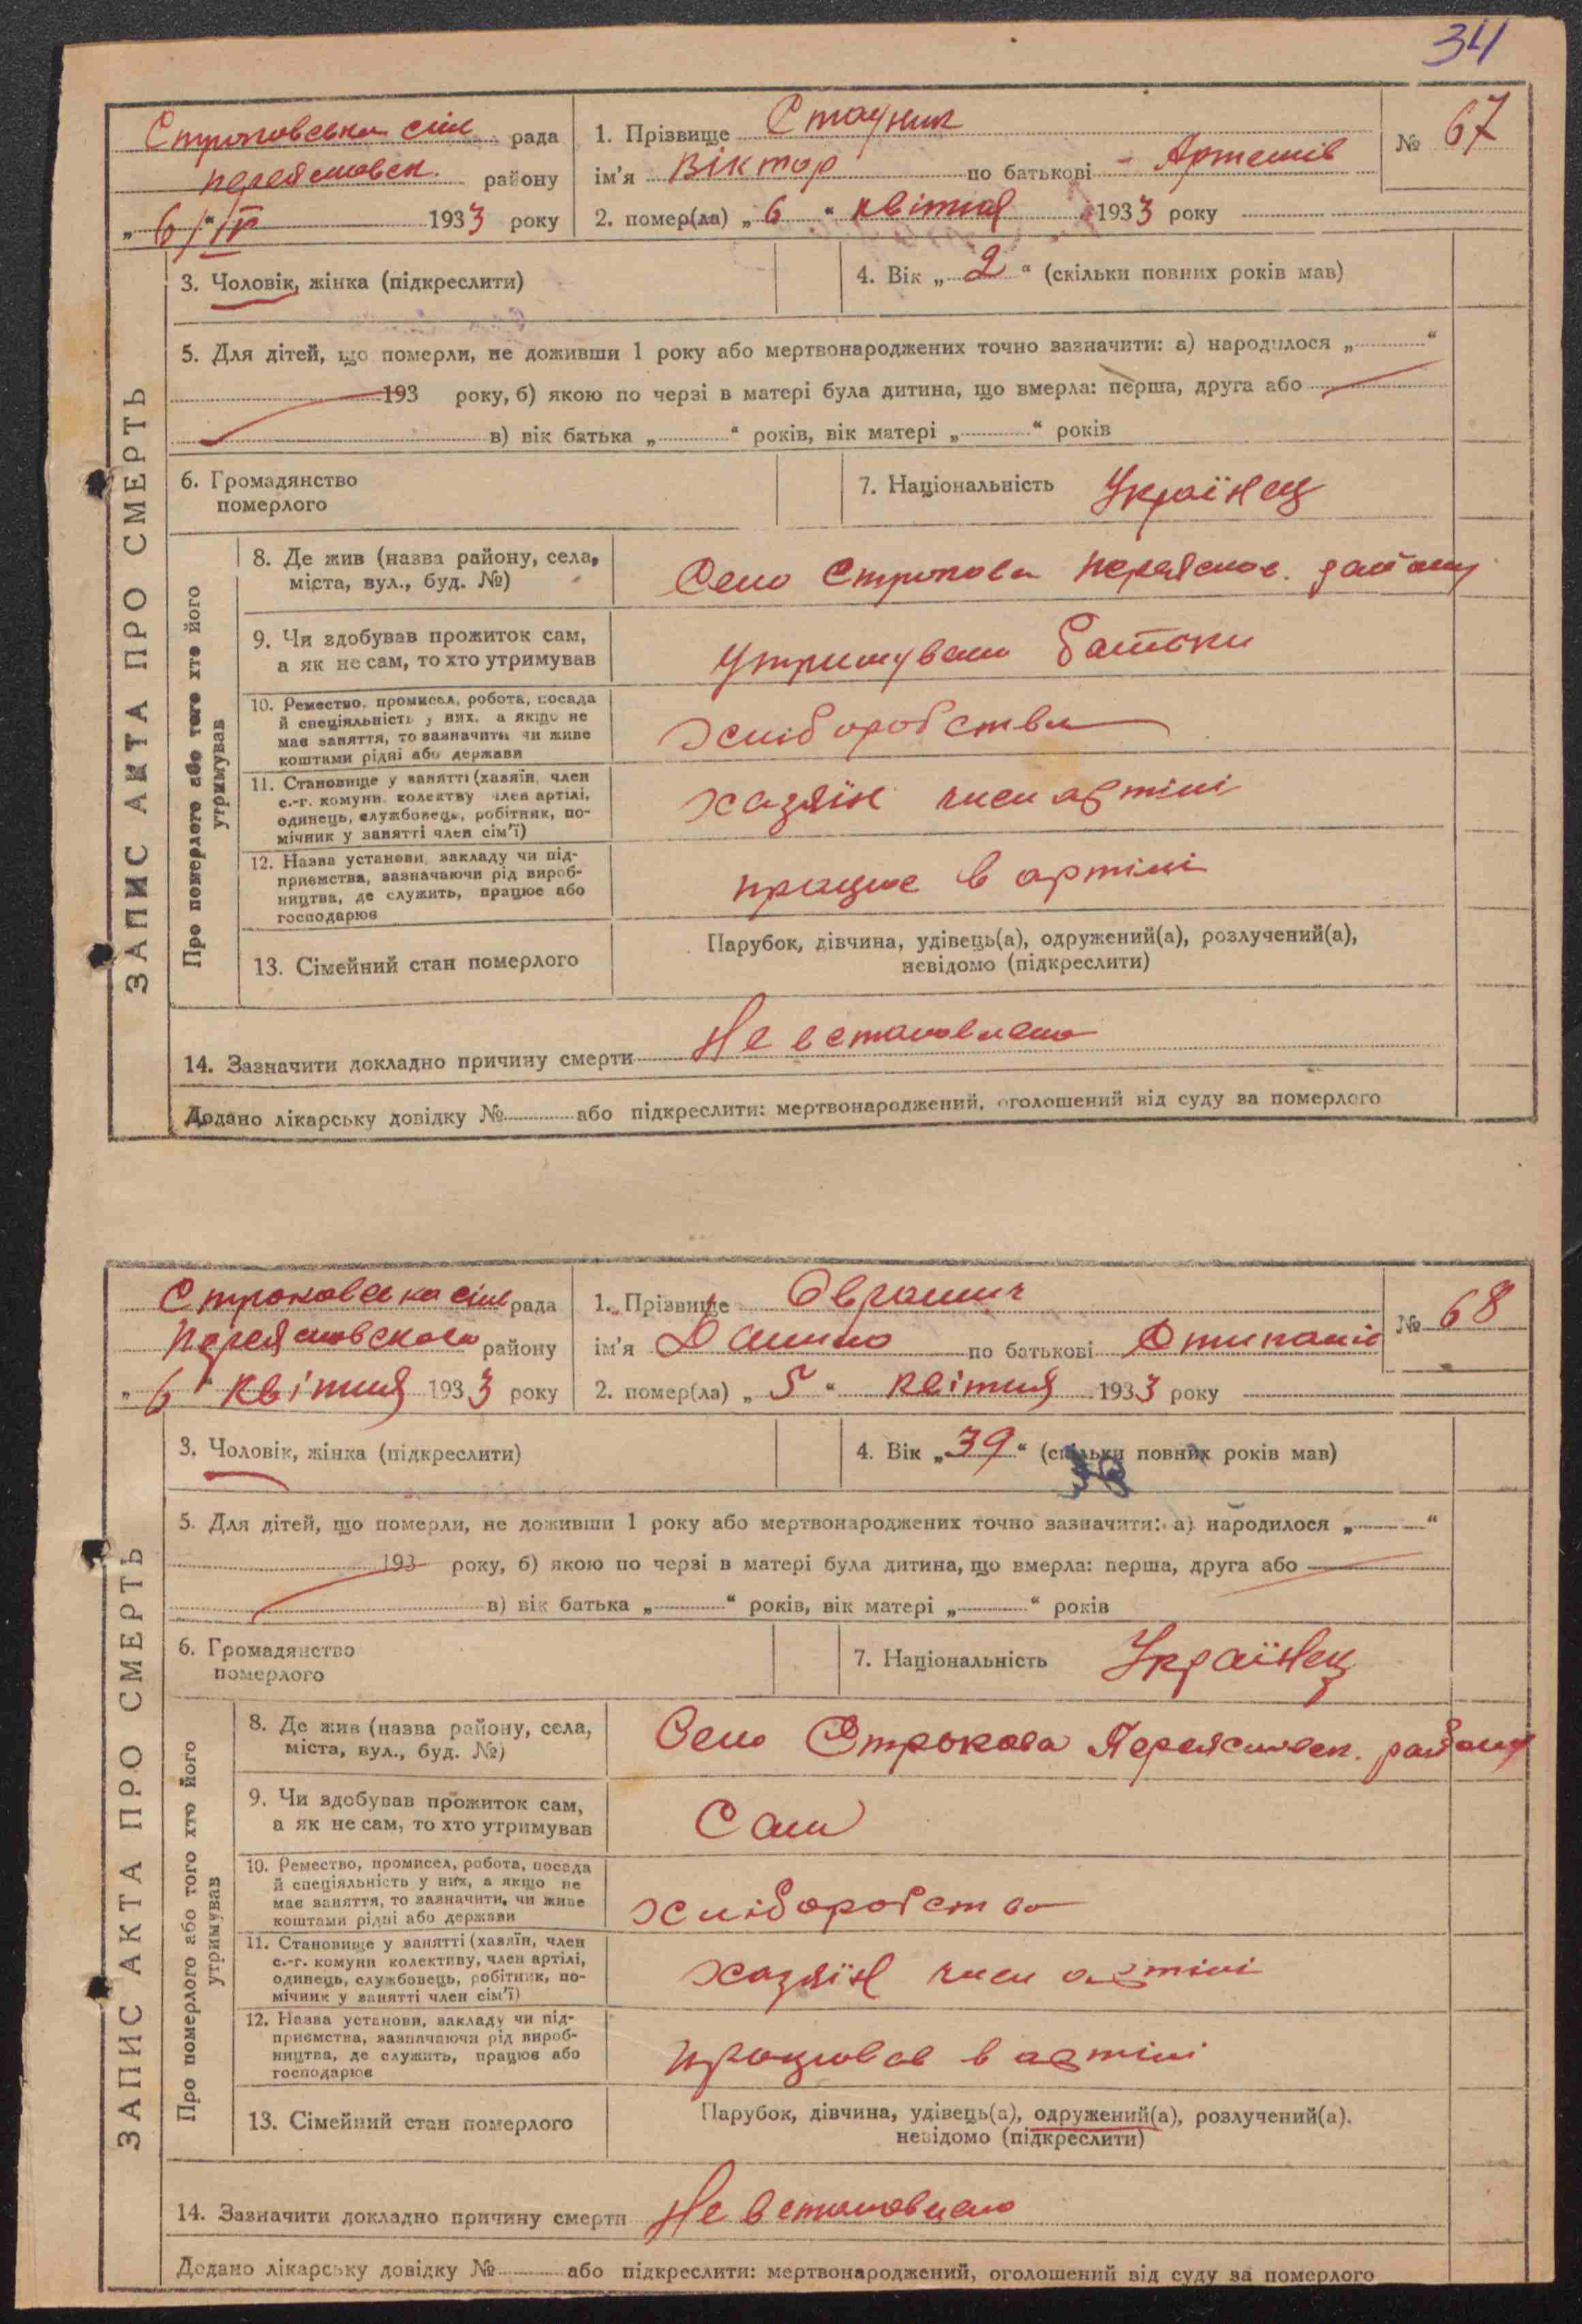 34
Строковська сіль рада
переяславськ. району
„ 6/" IV 1933 року
1. Прізвище Стацник
ім'я Віктор по батькові Артемів
2. помер(ла) „ 6 " квітня 1933 року
№ 67
ЗАПИС АКТА ПРО СМЕРТЬ
3. Чоловік, жінка (підкреслити)
4. Вік „ 2 " (скільки повних років мав)
5. Для дітей, що померли, не доживши 1 року або мертвонароджених точно зазначити: а) народилося „ "
193 року, б) якою по черзі в матері була дитина, що вмерла: перша, друга або
в) вік батька „ " років, вік матері „ " років
6. Громадянство
померлого
7. Національність Українец
Про померлого або того хто його
утримував
8. Де жив (назва району, села,
міста, вул., буд. №)
Село Строкова переяслов. району
9. Чи здобував прожиток сам,
а як не сам, то хто утримував
утримували батьки
10. Ремество, промисел, робота, посада
й спеціяльність у них, а якщо не
має заняття, то зазначити чи живе
коштами рідні або держави
хліборобство
11. Становище у занятті (хазяїн, член
с.-г. комуни, колективу член артілі,
одинець, службовець, робітник, по-
мічник у занятті член сім'ї)
хазяїн член артілі
12. Назва установи, закладу чи під-
приємства, зазначаючи рід вироб-
ництва, де служить, працює або
господарює
працює в артілі
13. Сімейний стан померлого
Парубок, дівчина, удівець(а), одружений(а), розлучений(а),
невідомо (підкреслити)
14. Зазначити докладно причину смерти Не встановлено
Додано лікарську довідку № або підкреслити: мертвонароджений, оголошений від суду за померлого
Строковська сіль рада
Переяславського району
„ 6 " квітня 1933 року
1. Прізвище Оврамич
ім'я Данило по батькові Остапові
2. помер(ла) „ 5 " квітня 1933 року
№ 68
ЗАПИС АКТА ПРО СМЕРТЬ
3. Чоловік, жінка (підкреслити)
4. Вік „ 39 " (скільки повних років мав)
5. Для дітей, що померли, не доживши 1 року або мертвонароджених точно зазначити: а) народилося „ "
193 року, б) якою по черзі в матері була дитина, що вмерла: перша, друга або
в) вік батька „ " років, вік матері „ " років
6. Громадянство
померлого
7. Національність Українец
Про померлого або того хто його
утримував
8. Де жив (назва району, села,
міста, вул., буд. №)
Село Строкова Переяславськ. району
9. Чи здобував прожиток сам,
а як не сам, то хто утримував
Сам
10. Ремество, промисел, робота, посада
й спеціяльність у них, а якщо не
має заняття, то зазначити, чи живе
коштами рідні або держави
хліборобство
11. Становище у занятті (хазяїн, член
с.-г. комуни колективу, член артілі,
одинець, службовець, робітник, по-
мічник у занятті член сім'ї)
хазяїн член артілі
12. Назва установи, закладу чи під-
приємства, зазначаючи рід вироб-
ництва, де служить, працює або
господарює
працював в артілі
13. Сімейний стан померлого
Парубок, дівчина, удівець(а), одружений(а), розлучений(а),
невідомо (підкреслити)
14. Зазначити докладно причину смерти Не встановлено
Додано лікарську довідку № або підкреслити: мертвонароджений, оголошений від суду за померлого